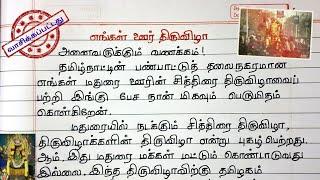 வாசிக்கப்பட்டது
எங்கள் ஊர் திருவிழா
அனைவருக்கும் வணக்கம்!
தமிழ்நாட்டின் பண்பாட்டுத் தலைநகரமான
எங்கள் மதுரை ஊரின் சித்திரை திருவிழாவைப்
பற்றி இங்கு பேச நான் மிகவும் பெருமிதம்
கொள்கிறேன்.
மதுரையில் நடக்கும் சித்திரை திருவிழா,
திருவிழாக்களின் திருவிழா என்று புகழ்பெற்றது.
ஆம். இது மதுரை மக்கள் மட்டும் கொண்டாடுவது
இல்லை. இந்த திருவிழாவிற்கு தமிழகம்